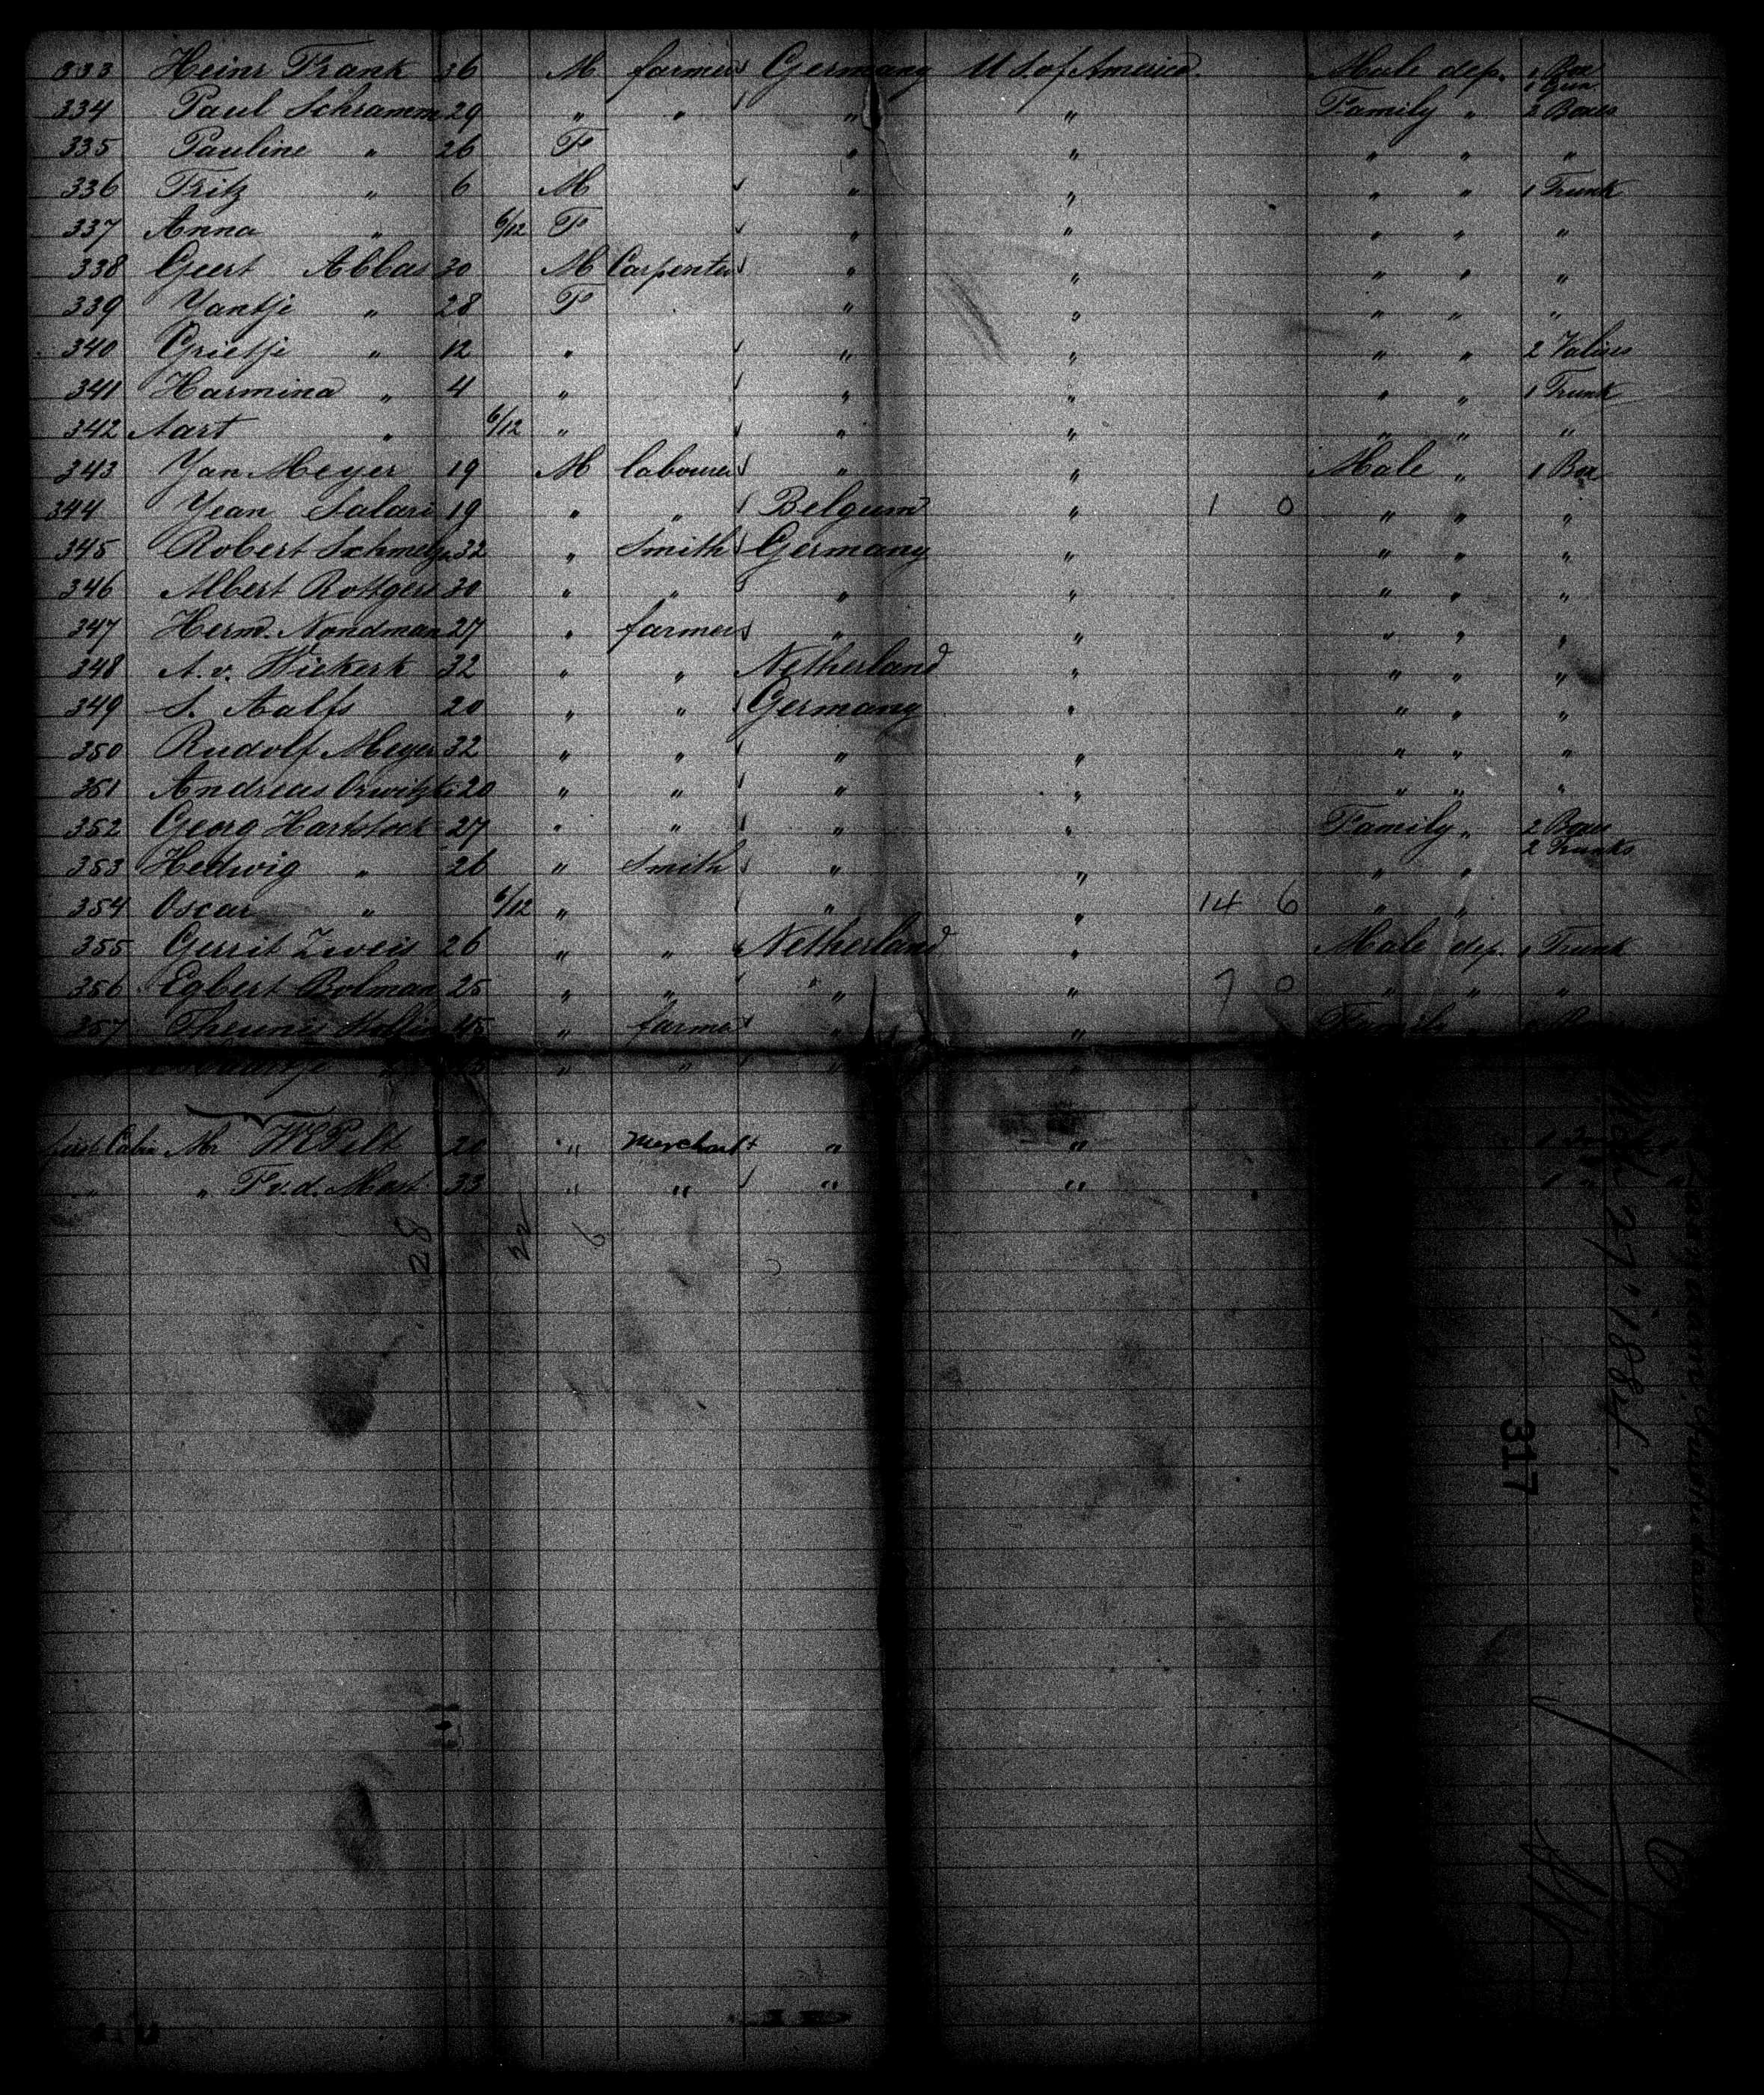 333 Heinr Frank 36 M farmer Germany U S. of America. Male dep. 1 Box
334 Paul Schramm 29 " " " " Family " 2 Boxes
335 Pauline " 26 F " " " " "
336 Fritz " 6 M " " " " 1 Trunk
337 Anna " 6/12 F " " " " "
338 Geert Abbas 30 M Carpenter " " " " "
339 Yantje " 28 F " " " " "
340 Grietje " 12 " " " " " 2 Valises
341 Harmina " 4 " " " " " 1 Trunk
342 Aart " 6/12 " " " " " "
343 Yan Meyer 19 M labourer " " Male " 1 Box
344 Yean Salari 19 " " Belgium " 1 0 " " "
345 Robert 32 " Smith Germany " " " "
346 Albert Rottgers 30 " " " " " " "
347 Herm. Nondman 27 " farmer " " " " "
348 A. v. Wiekerk 32 " " Netherland " " " "
349 S. Aalfs 20 " " Germany " " " "
350 Rudolf Meyer 32 " " " " " " "
351 Andreas 20 " " " " " " "
352 Georg Hartstock 27 " " " " Family " 2 Boxes
2 Trunks
353 Hedwig " 26 " Smith " " " "
354 Oscar " 6/12 " " " 14 6 " "
355 Gerrit Zweis 26 " " Netherland " Male dep. 1 Trunk
356 Egbert Bolman 25 " " " " 7 0 " " "
357 Theunis 45 " farmer " " Family "
" " " " "
first Cabin Mr W E Pelt 20 " Merchant " "
" " F v.d. Mast 33 " " " " 1 "
28 22 6
27" 1884
317